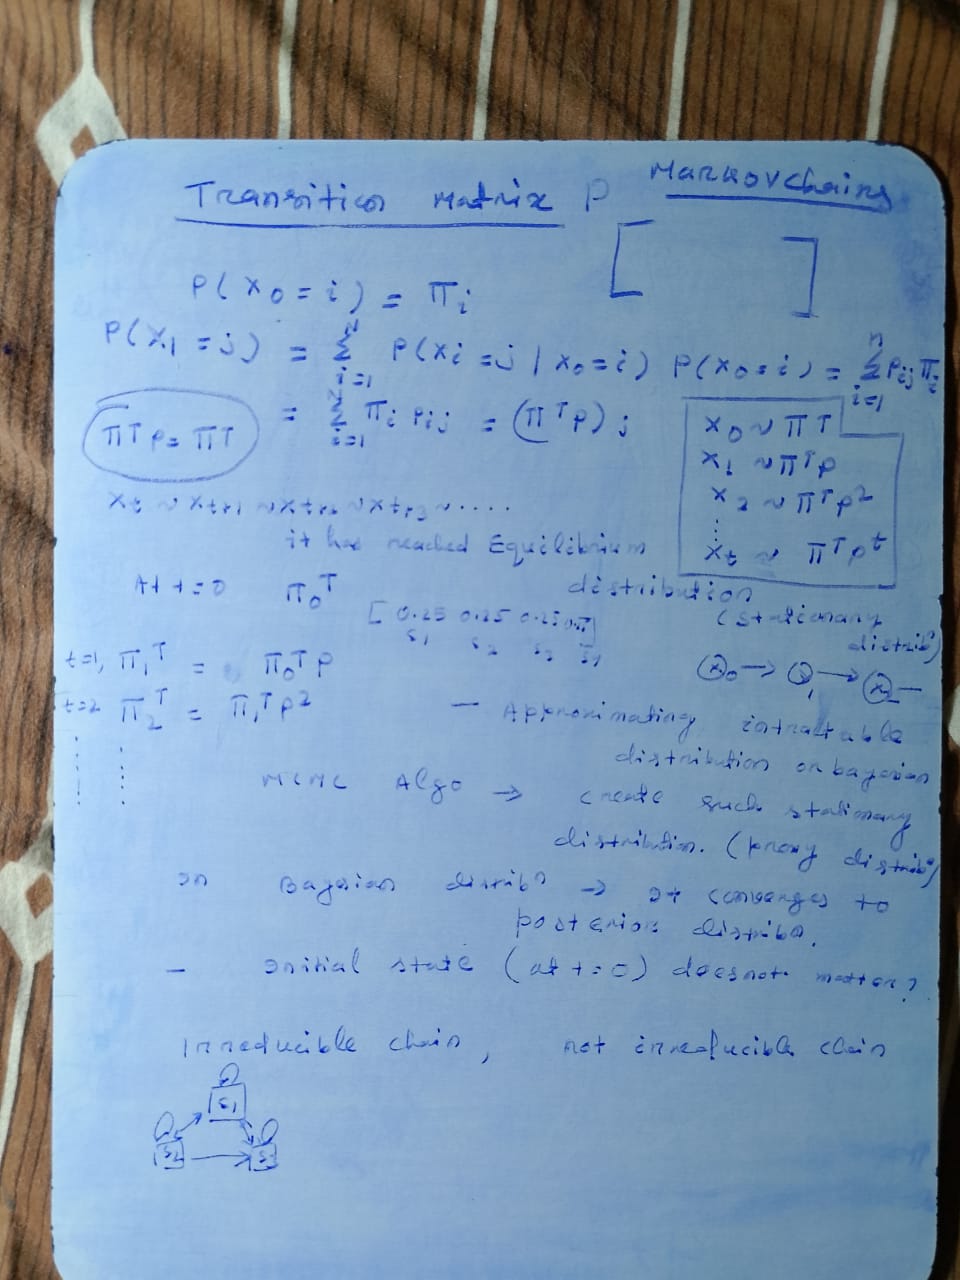 Transition matrix P
Markov chains
P(X0 = i) = πi
P(X1 = j) = Σ i=1 P(Xi = j | X0 = i) P(X0 = i) = Σ n i=1 Pij πi
= Σ i=1 πi Pij = (π^T P)j
π^T P = π^T
X0 ~ π^T
X1 ~ π^T P
X2 ~ π^T P^2
⋮
Xt ~ π^T P^t
Xt ~ Xt+1 ~ Xt+2 ~ Xt+3 ~ ....
it has reached Equilibrium
distribution
(stationary
distribⁿ)
At t=0 π0^T
[0.25 0.25 0.25 ]
S1 S2 S3
t=1, π1^T = π0^T P
X0 → X1 → X2 —
t=2 π2^T = π1^T P^2
— Approximating intractable
distribution or bayesian
MCMC Algo → create such stationary
distribution. (proxy distribⁿ)
In Bayesian distribⁿ → It converges to
posterior distribn.
— Initial state (at t=0) doesnot matter?
Irreducible chain, not irreducible chain
S1
S2